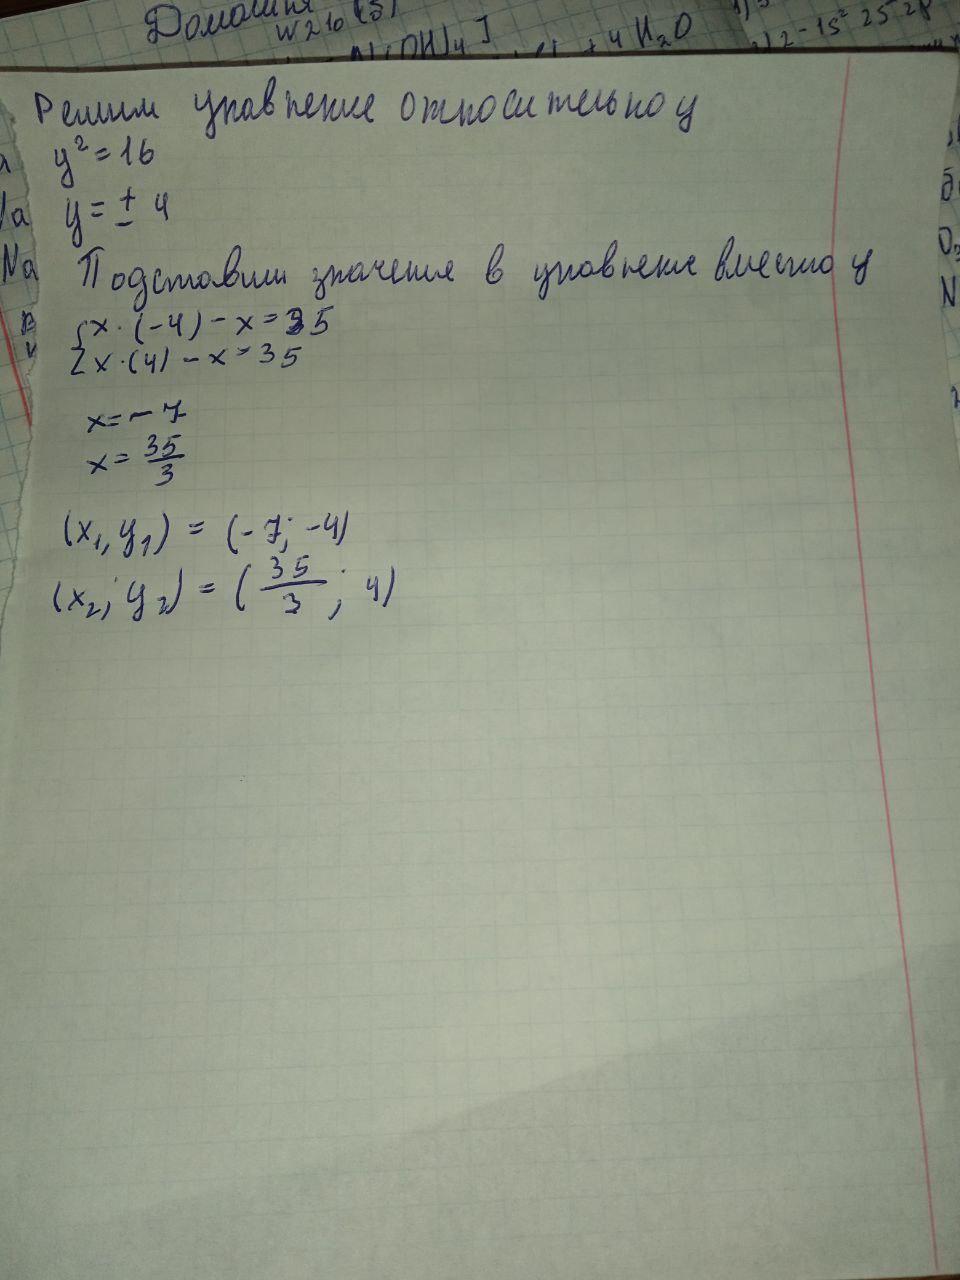 Домашня
W210 (5)
(OH)4] + 4 H2O
2 - 1s² 2s 2p
Решим уравнение относительно y
y² = 16
y = ± 4
Na
Подставим значение в уравнение вместо y
{x·(-4) - x = 35
x·(4) - x = 35
x = - 7
x = 35/3
(x1, y1) = (-7; -4)
(x2; y2) = (35/3; 4)